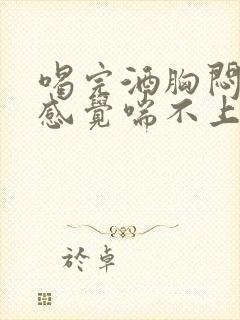 喝完酒胸悶
感覺喘不上
於卓